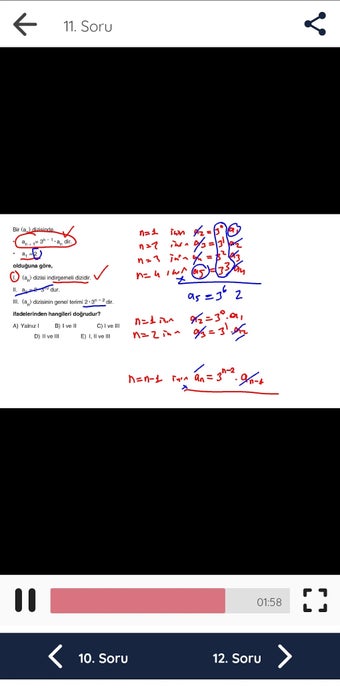 11. Soru
Bir (aₙ) dizisinde,
aₙ₊₁ = 3ⁿ⁻¹·aₙ dir.
a₁ = 2
olduğuna göre,
I. (aₙ) dizisi indirgemeli dizidir.
II. dur.
III. (aₙ) dizisinin genel terimi 2·3ⁿ⁺² dir.
ifadelerinden hangileri doğrudur?
A) Yalnız I B) I ve II C) I ve III
D) II ve III E) I, II ve III
n=1 için a₂ = 3⁰ a₁
n=2 için a₃ = 3¹ a₂
n=3 için = 3² a₃
n=4 için a₅ = 3³ a₄
a₅ = 3⁶ 2
n=1 için a₂ = 3⁰ . a₁
n=2 için a₃ = 3¹ . a₂
n=n-1 için aₙ = 3ⁿ⁻² . aₙ₋₁
01:58
10. Soru
12. Soru